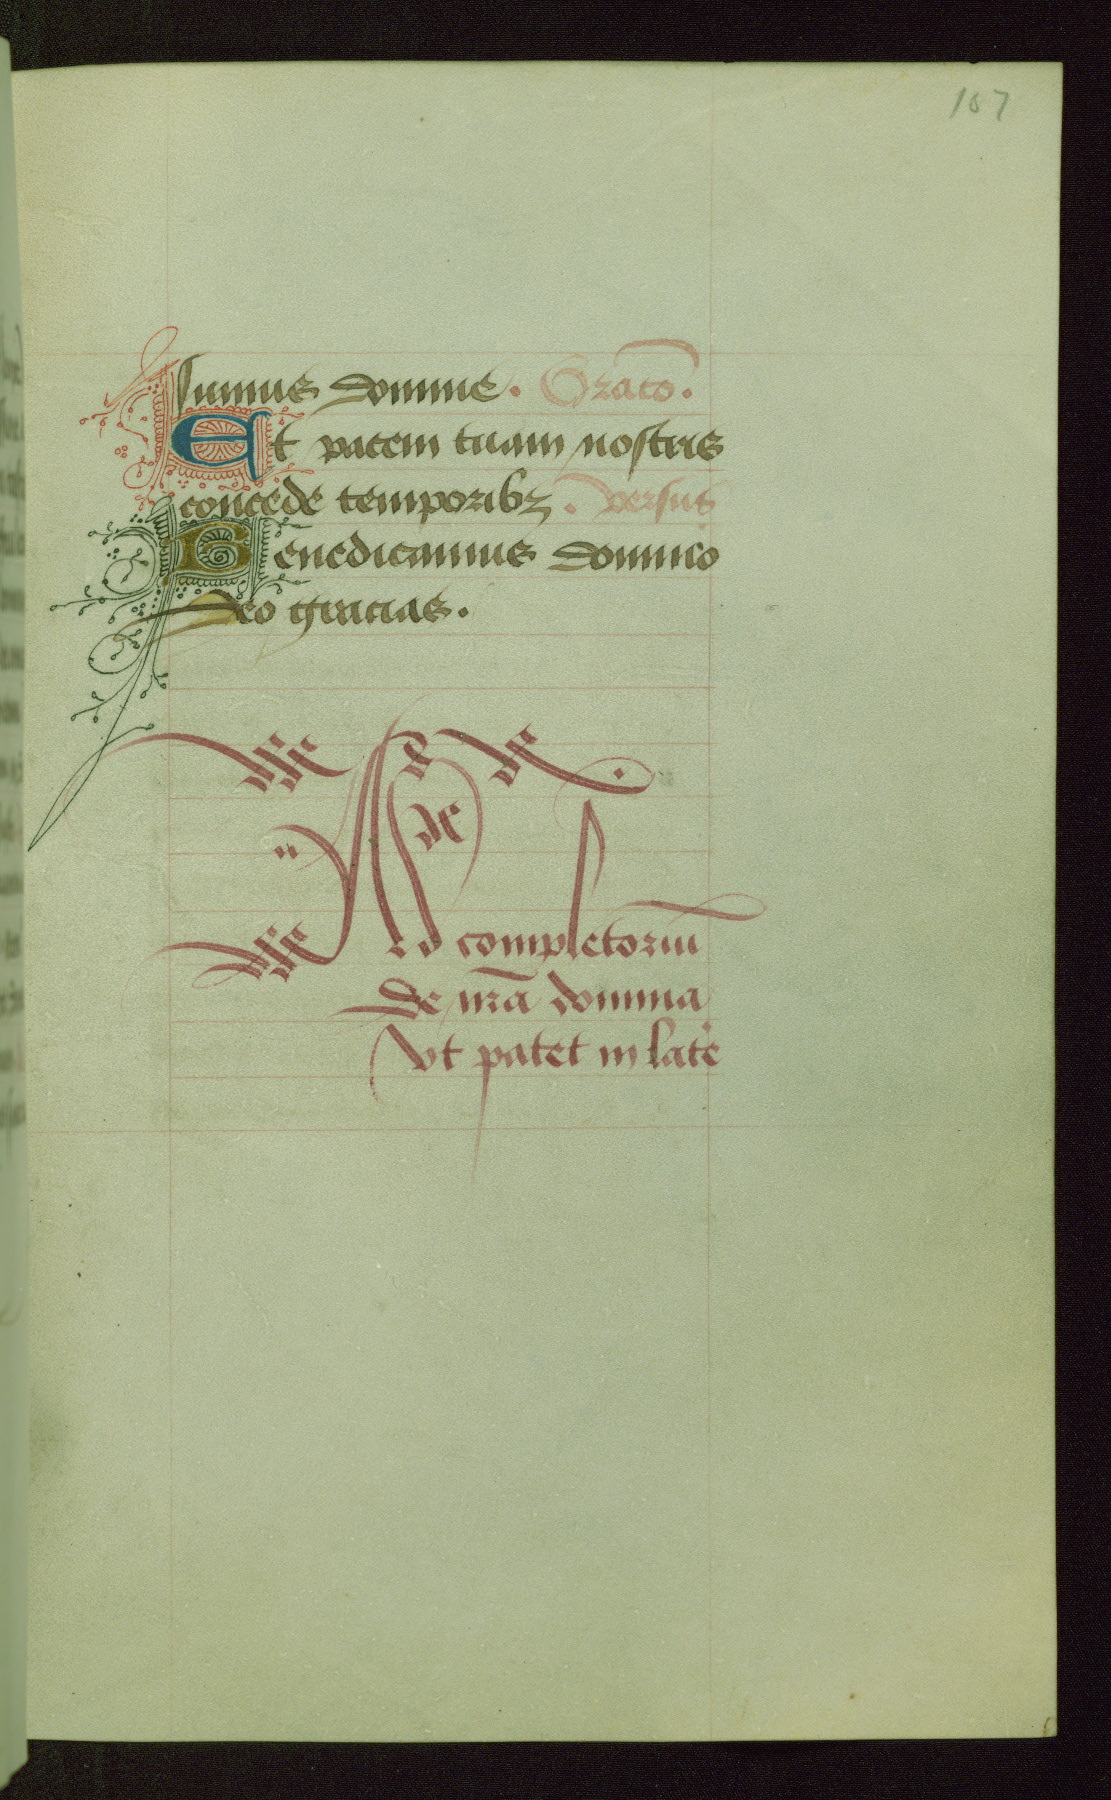 107
sumus domine. Oratō.
Et pacem tuam nostris
concede temporibꝫ. versus
Benedicamus domino
Deo gracias.
Ad completoriū
de nr̄a domina
Vt patet in late